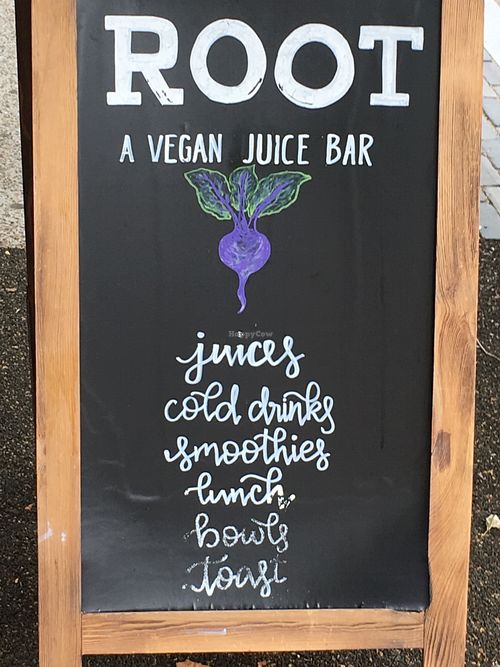 ROOT
A VEGAN JUICE BAR
HappyCow
juices
cold drinks
smoothies
lunch
bowls
toast